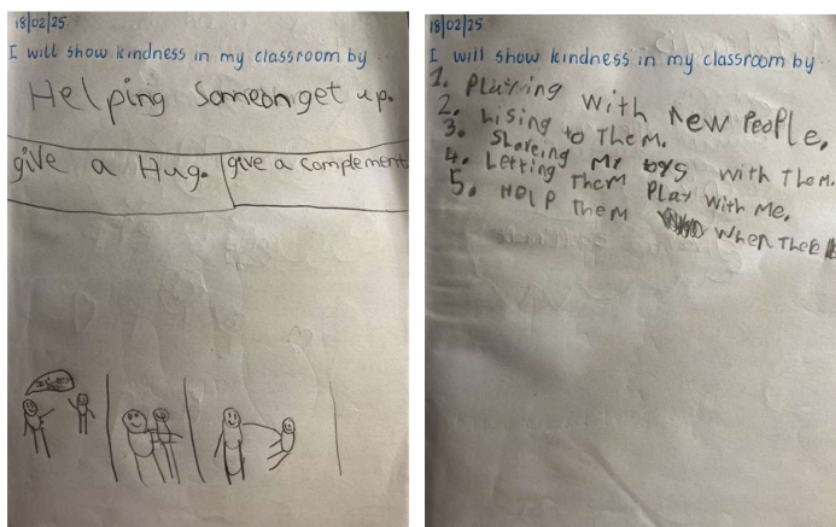 18/02/25
I will show kindness in my classroom by ..
Helping someon get up.
give a Hug.
give a complement
18/02/25
I will show kindness in my classroom by ..
1. Playing with new People.
2. Lising to Them.
3. Shareing My toys with Them.
4. Letting Them Play with Me.
5. HelP Them when There